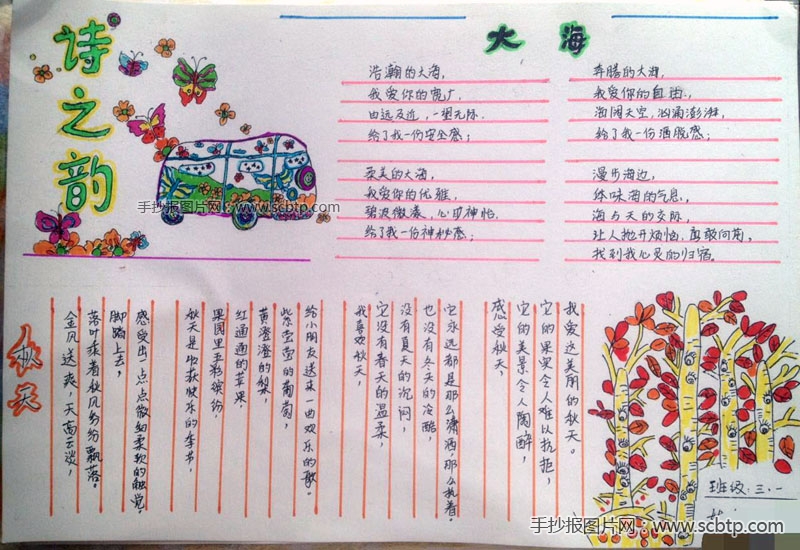 诗之韵
大海
浩瀚的大海，
我爱你的宽广，
由远及近，一望无际
给了我一份安全感；
柔美的大海，
我爱你的优雅，
碧波微漾，心旷神怡，
给了我一份神秘感；
奔腾的大海，
我爱你的自由，
海阔天空，汹涌澎湃，
给了我一份洒脱感；
漫步海边，
体味海的气息，
海与天的交际，
让人抛开烦恼，勇敢向前。
找到我心灵的归宿。
手抄报图片网：www.scbtp.com
秋天
金风送爽，天高云淡，
落叶乘着秋风纷纷飘落。
脚踏上去，
感受出一点点微细柔软的触觉。
秋天是收获快乐的季节，
果园里五彩缤纷，
红通通的苹果，
黄澄澄的梨，
紫莹莹的葡萄，
给小朋友送来一曲欢乐的歌。
我喜欢秋天，
它没有春天的温柔，
没有夏天的沉闷，
也没有冬天的冷酷，
它永远都是那么潇洒那么执着。
感受秋天，
它的美景令人陶醉，
它的果实令人难以抗拒，
我爱这美丽的秋天。
班级：三.一
手抄报图片网：www.scbtp.com